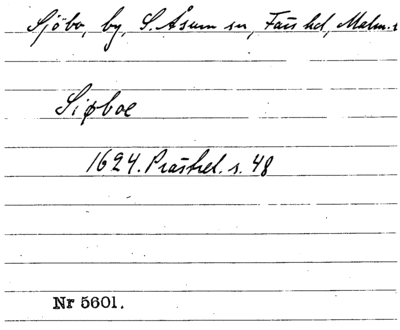 Sjöbo, by, S. Åsum sn, Färs hd, Malm. l
Siøboe
1624. Prästrel. s. 48
Nr 5601.